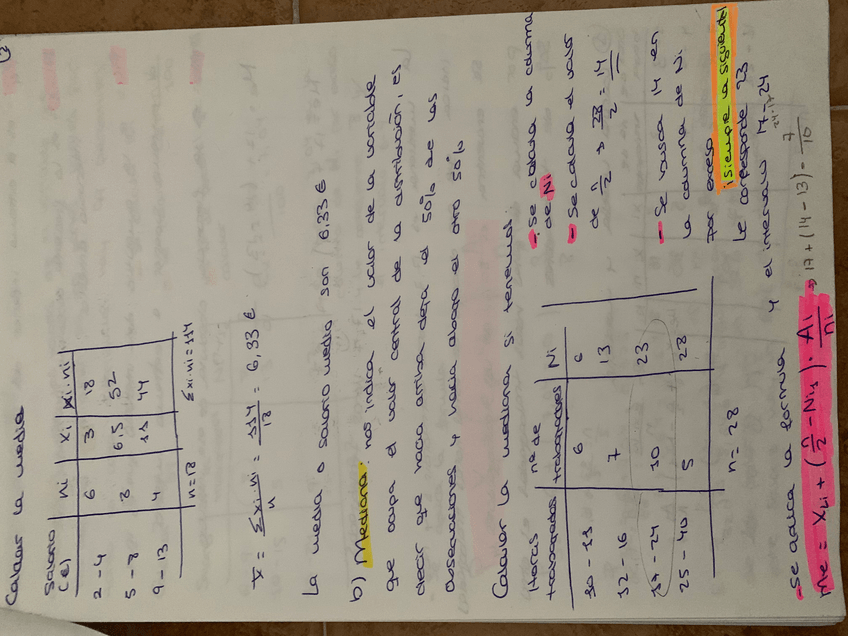 2
Calcular la media
Salario (€) | ni | xi | xi·ni
2 - 4 | 6 | 3 | 18
5 - 8 | 8 | 6,5 | 52
9 - 13 | 4 | 11 | 44
n = 18 Σxi·ni = 114
x̄ = Σxi·ni / n = 114 / 18 = 6,33 €
La media o salario medio son 6,33 €
b) Mediana: nos indica el valor de la variable
que ocupa el valor central de la distribución, es
decir que hacia arriba deja el 50% de las
observaciones y hacia abajo el otro 50%
Calcular la mediana si tenemos:
Horas trabajadas | nº de trabajadores | Ni
10 - 11 | 6 | 6
12 - 16 | 7 | 13
17 - 24 | 10 | 23
25 - 40 | 5 | 28
n = 28
- Se calcula la columna
de Ni
- Se calcula el valor
de n/2 → 28/2 = 14
- Se busca 14 en
la columna de Ni
por exceso
¡siempre la siguiente!
Le corresponde 23
y el intervalo 17-24
- Se aplica la formula
Me = XLi + (n/2 - Ni-1) · Ai/ni → 17 + (14 - 13) = 7/10
24-17